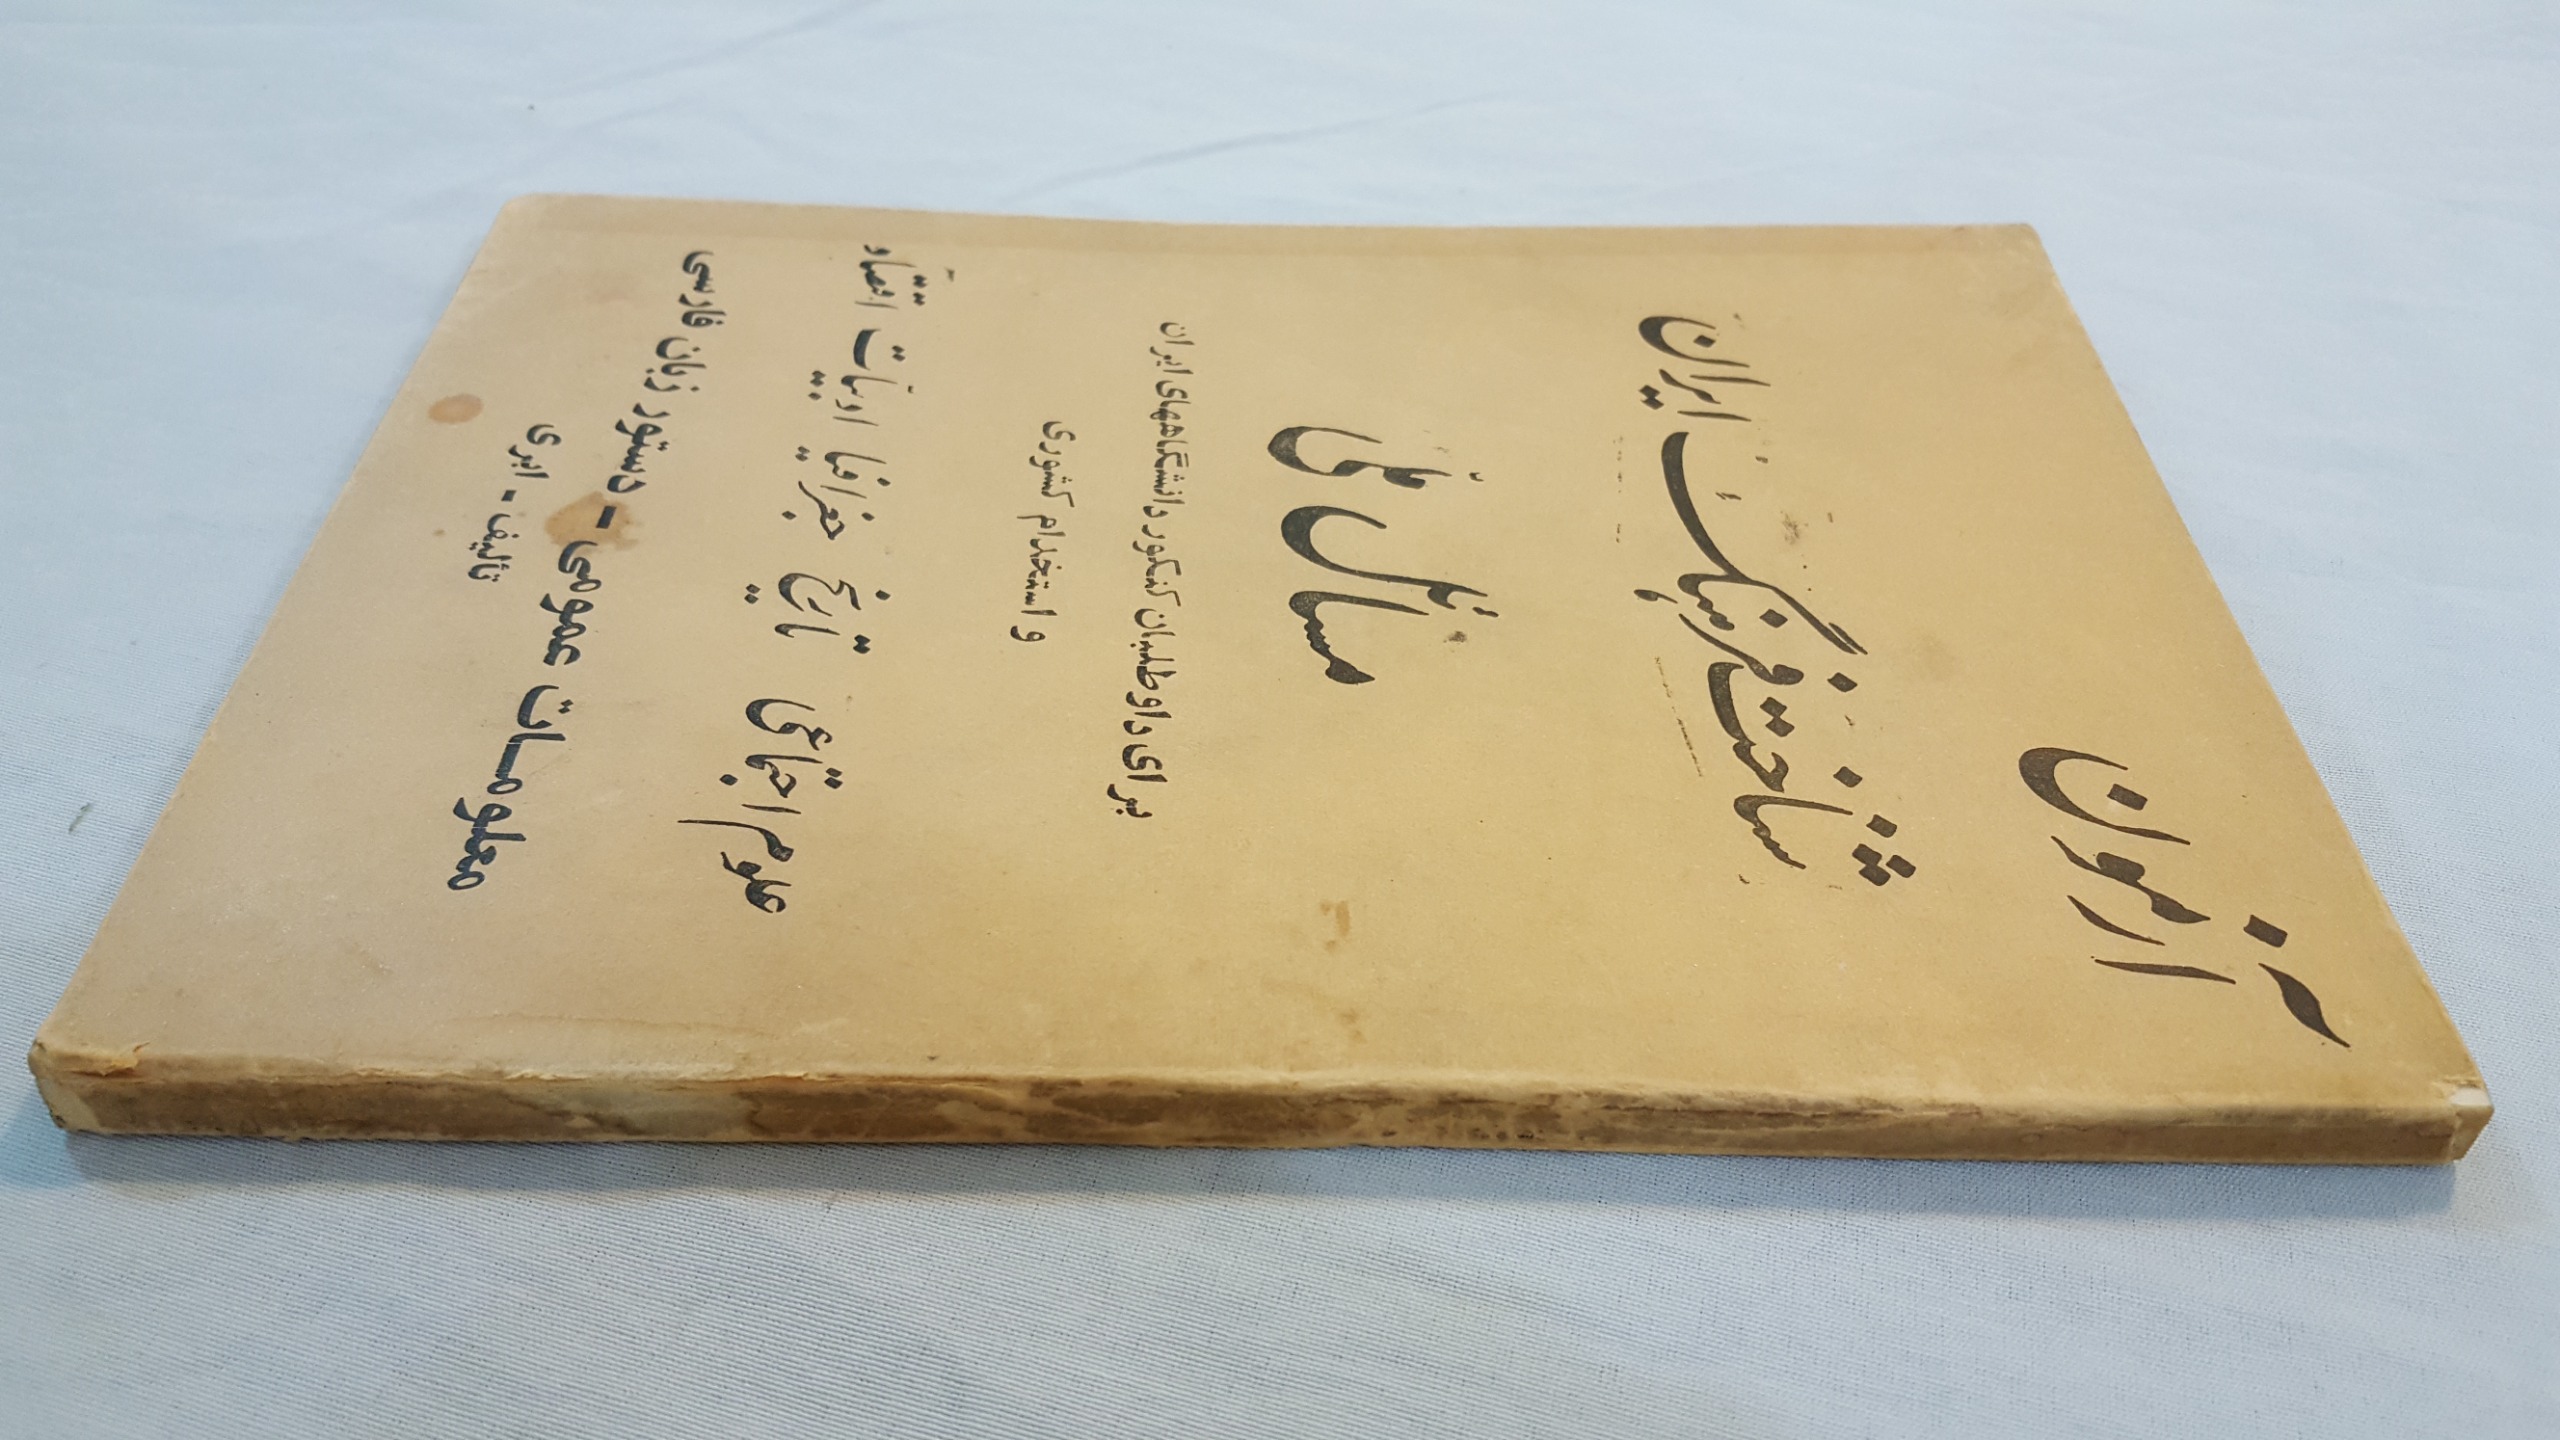 آزمون
شناخت فرهنگ ایران
مسائل ملی
برای داوطلبان کنکور دانشگاههای ایران
و استخدام کشوری
علوم اجتماعی تاریخ جغرافیا ادبیات اقتصاد
معلومات عمومی - دستور زبان فارسی
تألیف - ایری